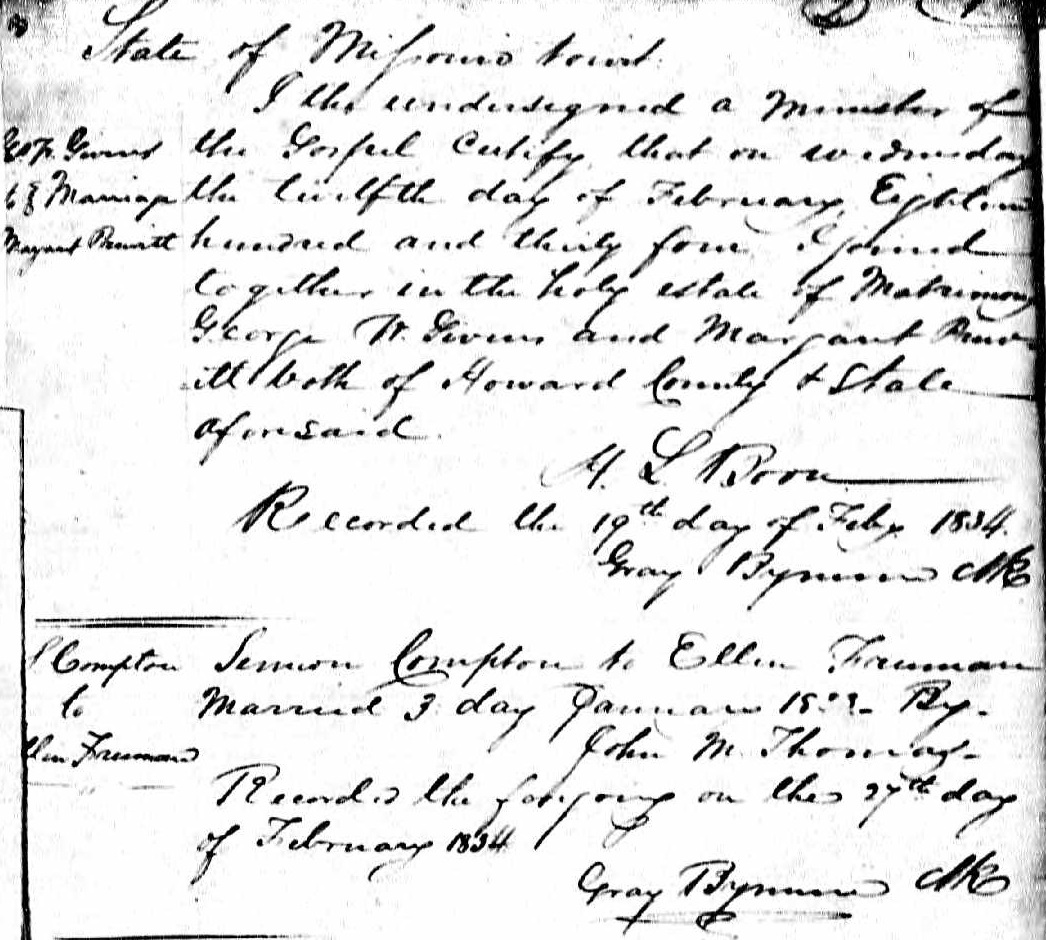 State of Missouri to wit.
I the undersigned a Minister of
the Gospel Certify that on wednesday
the twelfth day of February, Eighteen
hundred and thirty four I joined
together in the holy estate of Matrimony
George W. Givens and Margaret Pruw-
itt both of Howard County & State
aforesaid.
H. L. Boon
Recorded the 19th day of Feby. 1834.
Gray Bynum Clk
Geo W. Givens
to } Marriage
Margaret Pruwitt
Simion Compton to Ellen Freeman
Married 3 day January By.
John M. Thomas-
Recorded the forgoing on the 27th day
of February 1834
Gray Bynum Clk
S Compton
to
Ellen Freeman